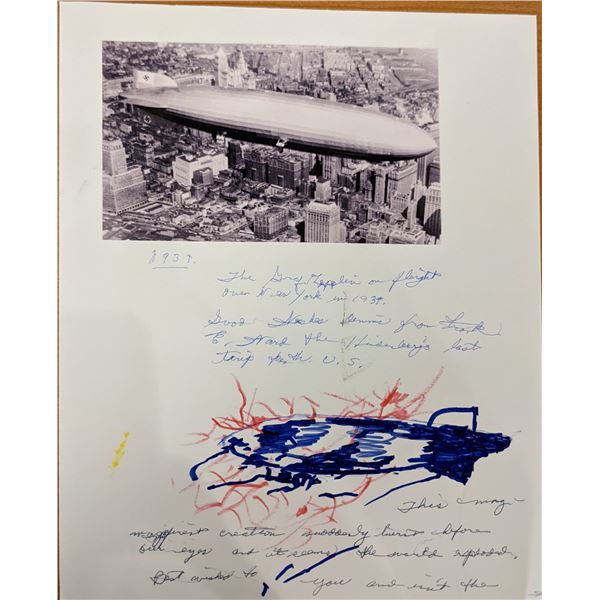 1937.
The Graf Zeppelin on flight
over New York in 1937.
Good Dennis from Frank
E. Ward the Hindenburg's last
trip to the U.S.
This
creation suddenly burns before
our eyes and it seems the world exploded.
Best wishes to you and isn't the